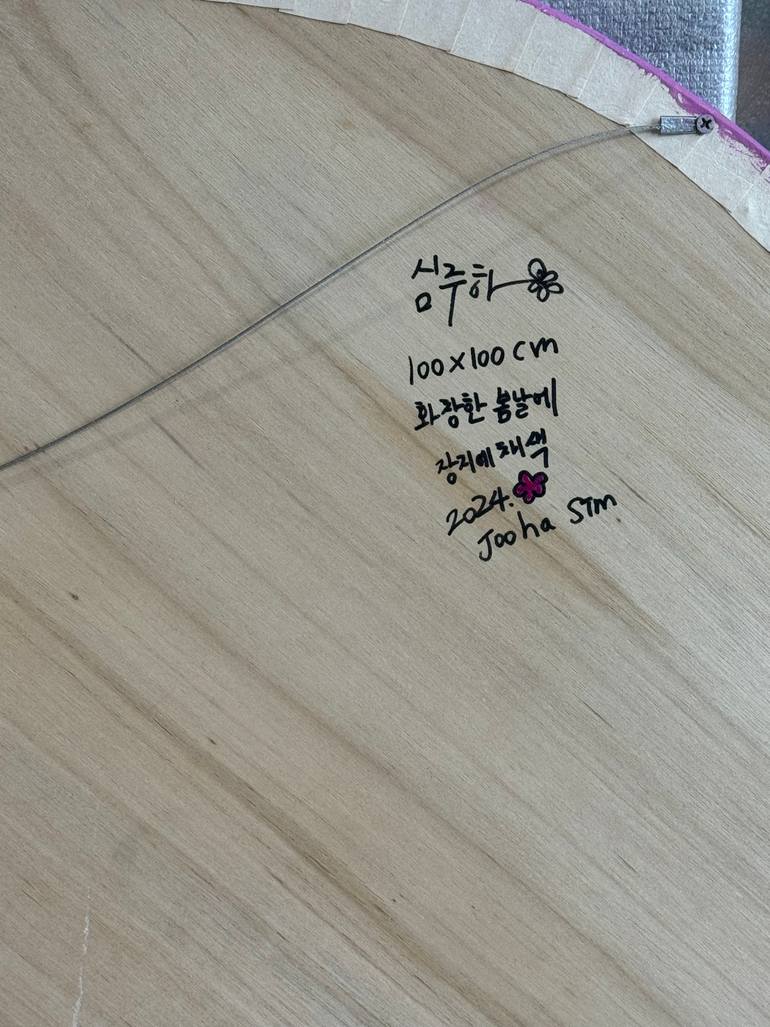 심주하
100x100cm
화창한 봄날에
장지에 채색
2024.
Jooha Sim